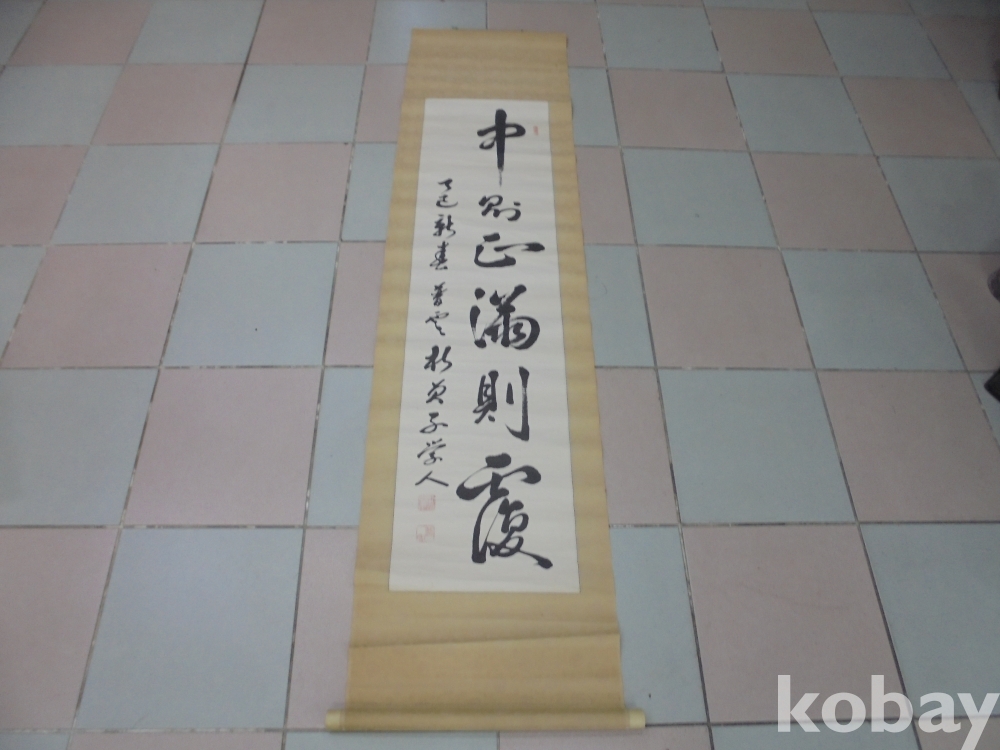 中則正滿則覆
丁巳新春
學人
kobay